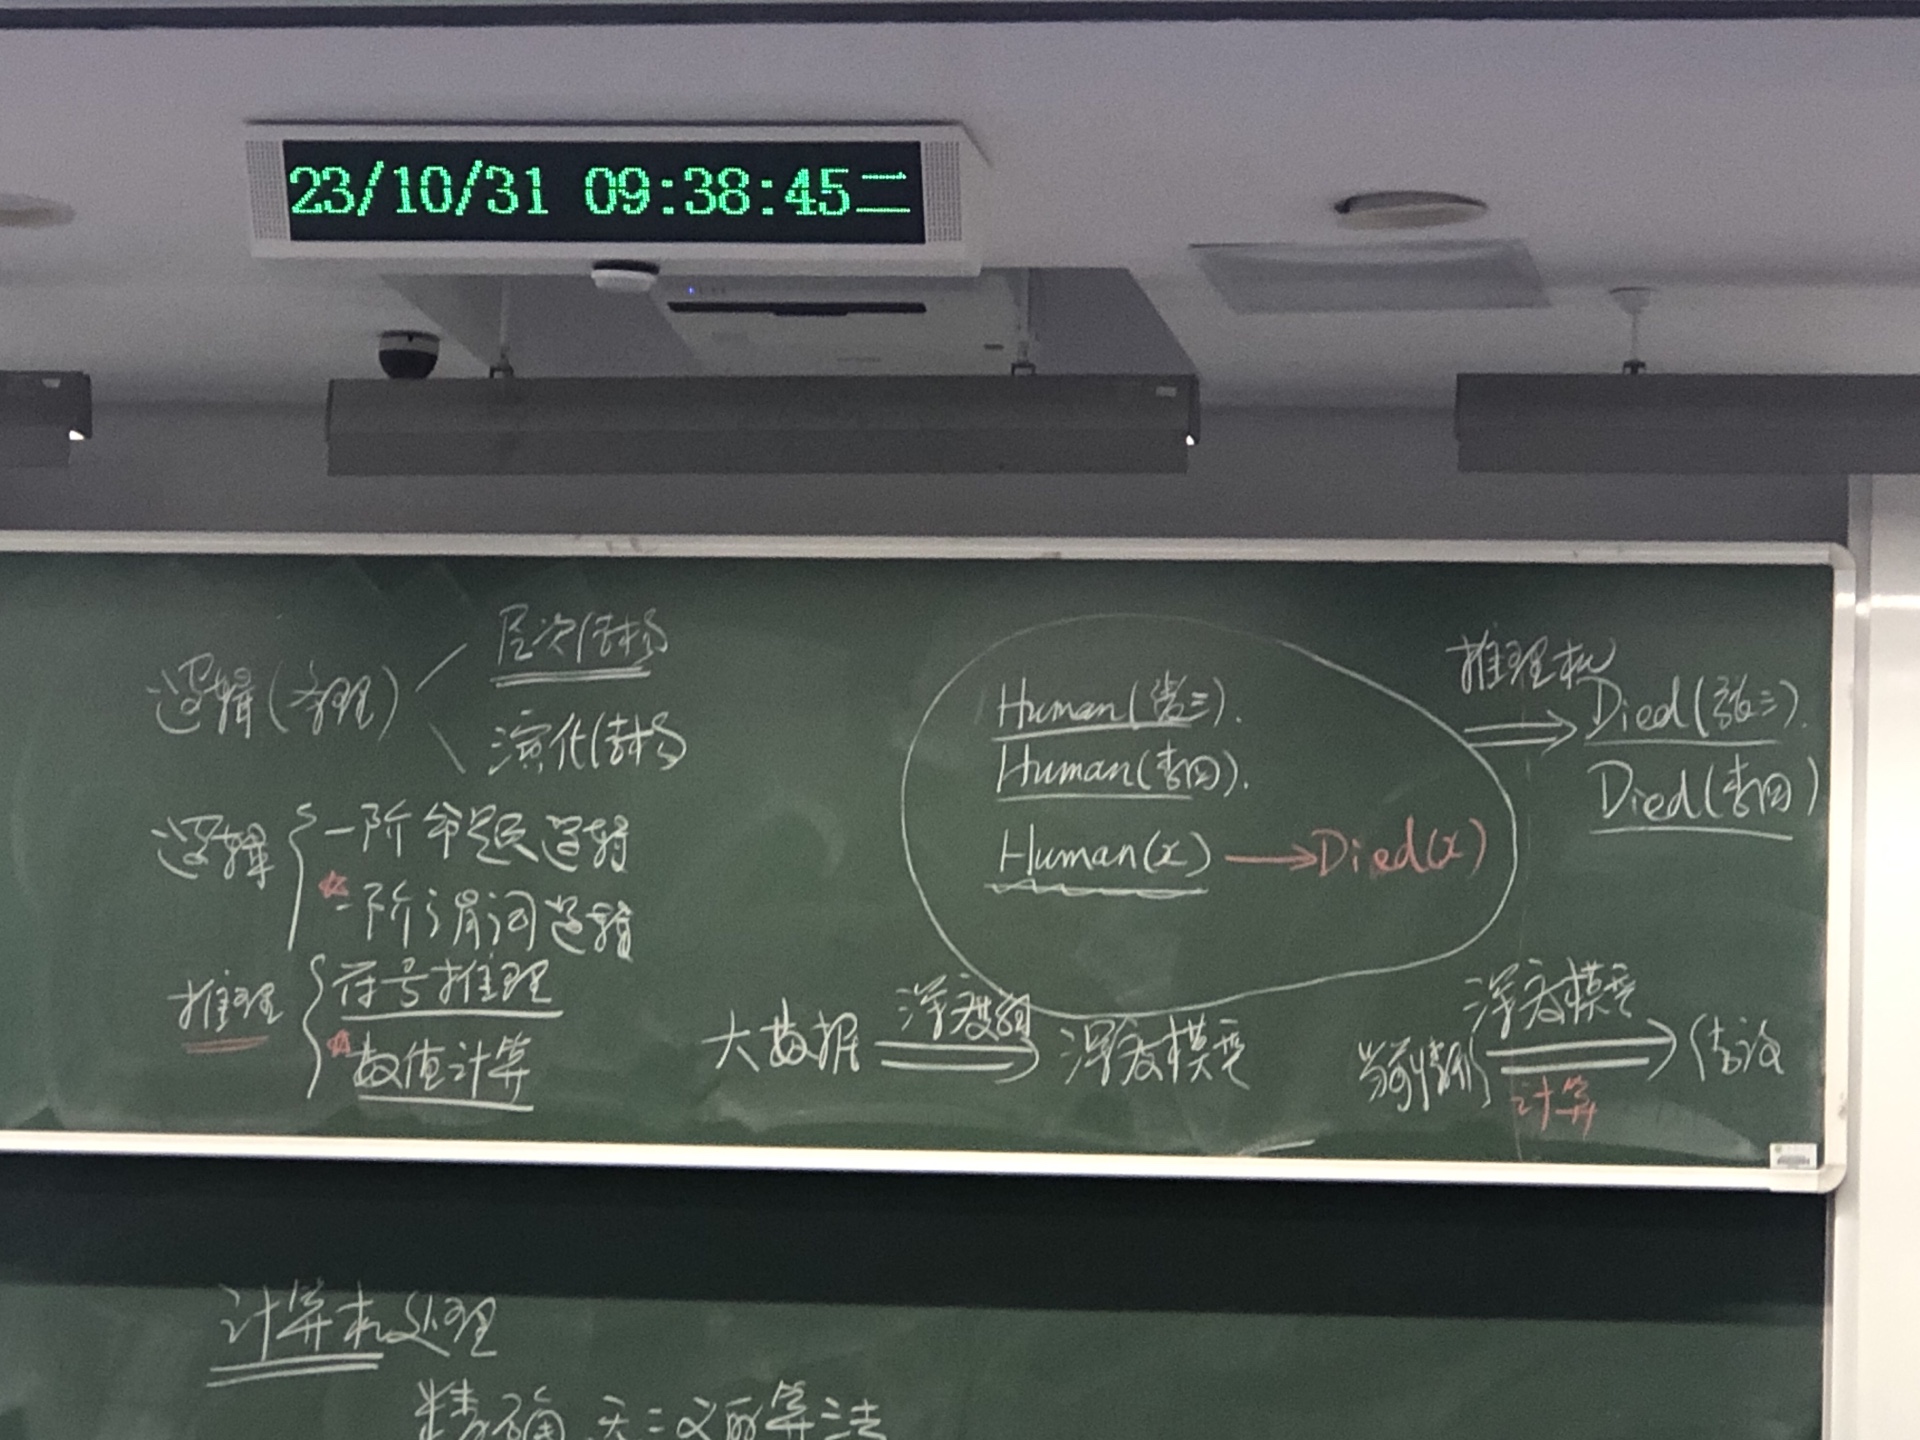 23/10/31 09:38:45二
逻辑(条理)
层次结构
演化结构
逻辑
一阶命题逻辑
一阶谓词逻辑
推理
符号推理
数值计算
Human(张三).
Human(李四).
Human(x) → Died(x)
推理机
⇒ Died(张三).
Died(李四)
深度
大数据 ⇒ 深度模型
深度模型
⇒ 结论
计算
计算机处理
精确 无二义的算法